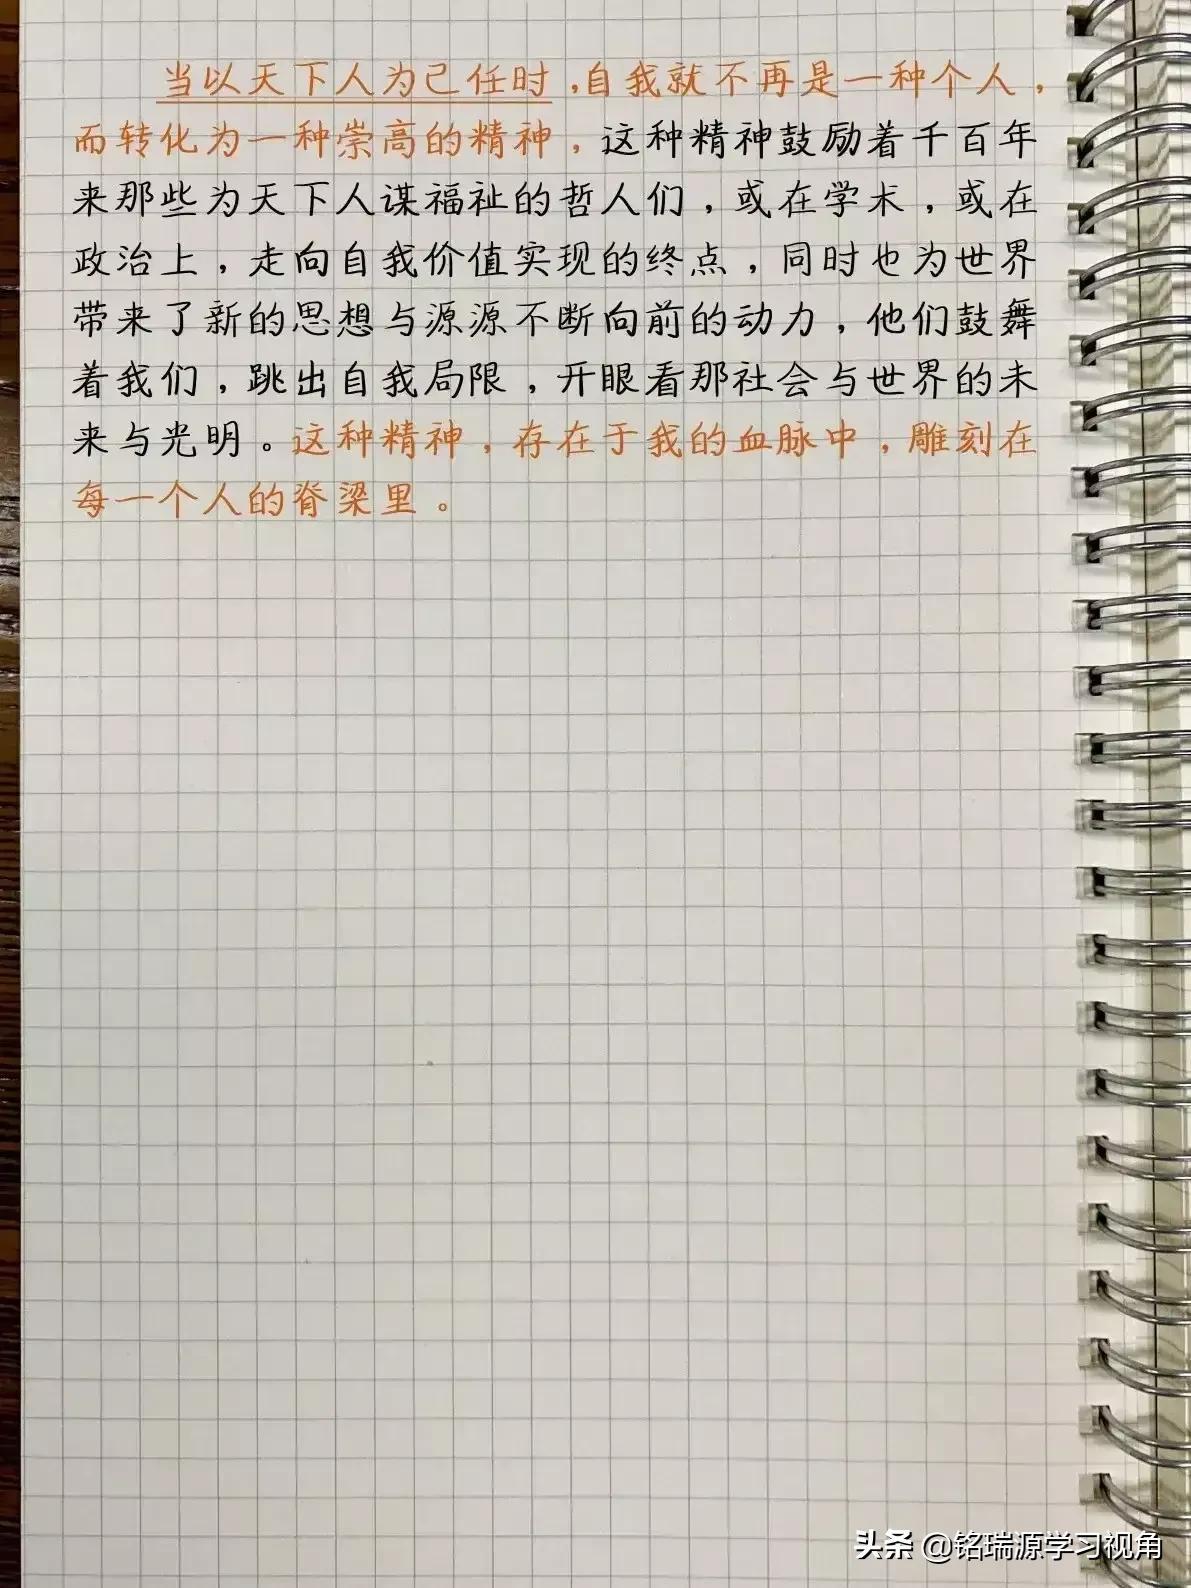 当以天下人为己任时，自我就不再是一种个人，
而转化为一种崇高的精神，这种精神鼓励着千百年
来那些为天下人谋福祉的哲人们，或在学术，或在
政治上，走向自我价值实现的终点，同时也为世界
带来了新的思想与源源不断向前的动力，他们鼓舞
着我们，跳出自我局限，开眼看那社会与世界的未
来与光明。这种精神，存在于我的血脉中，雕刻在
每一个人的脊梁里。
头条 @铭瑞源学习视角